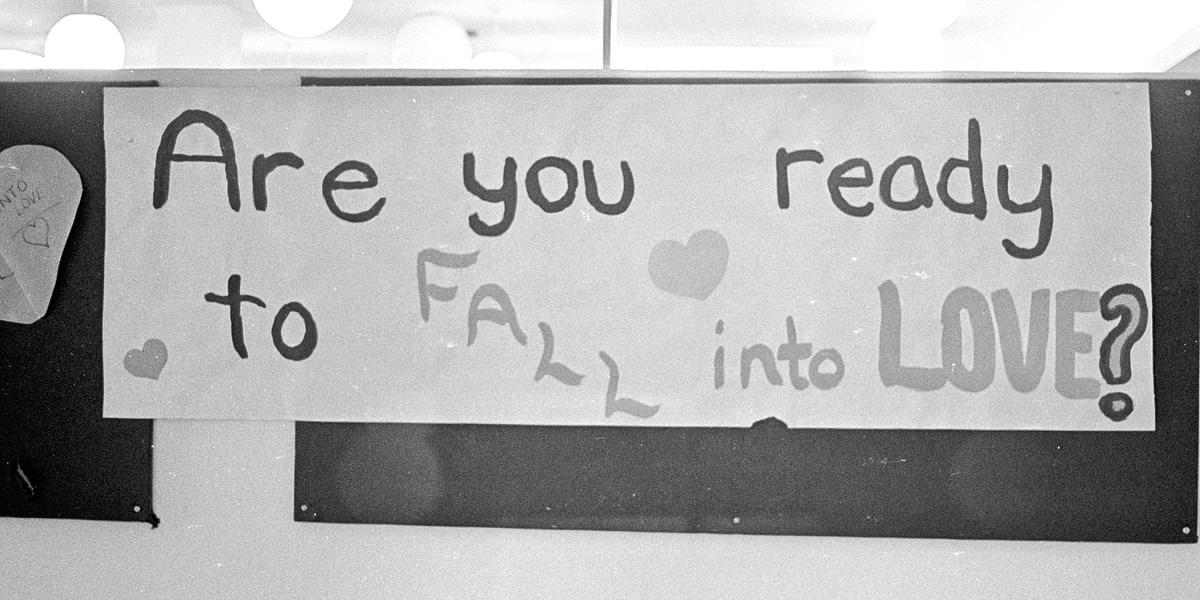 Are you ready
to FALL into LOVE?
INTO
LOVE